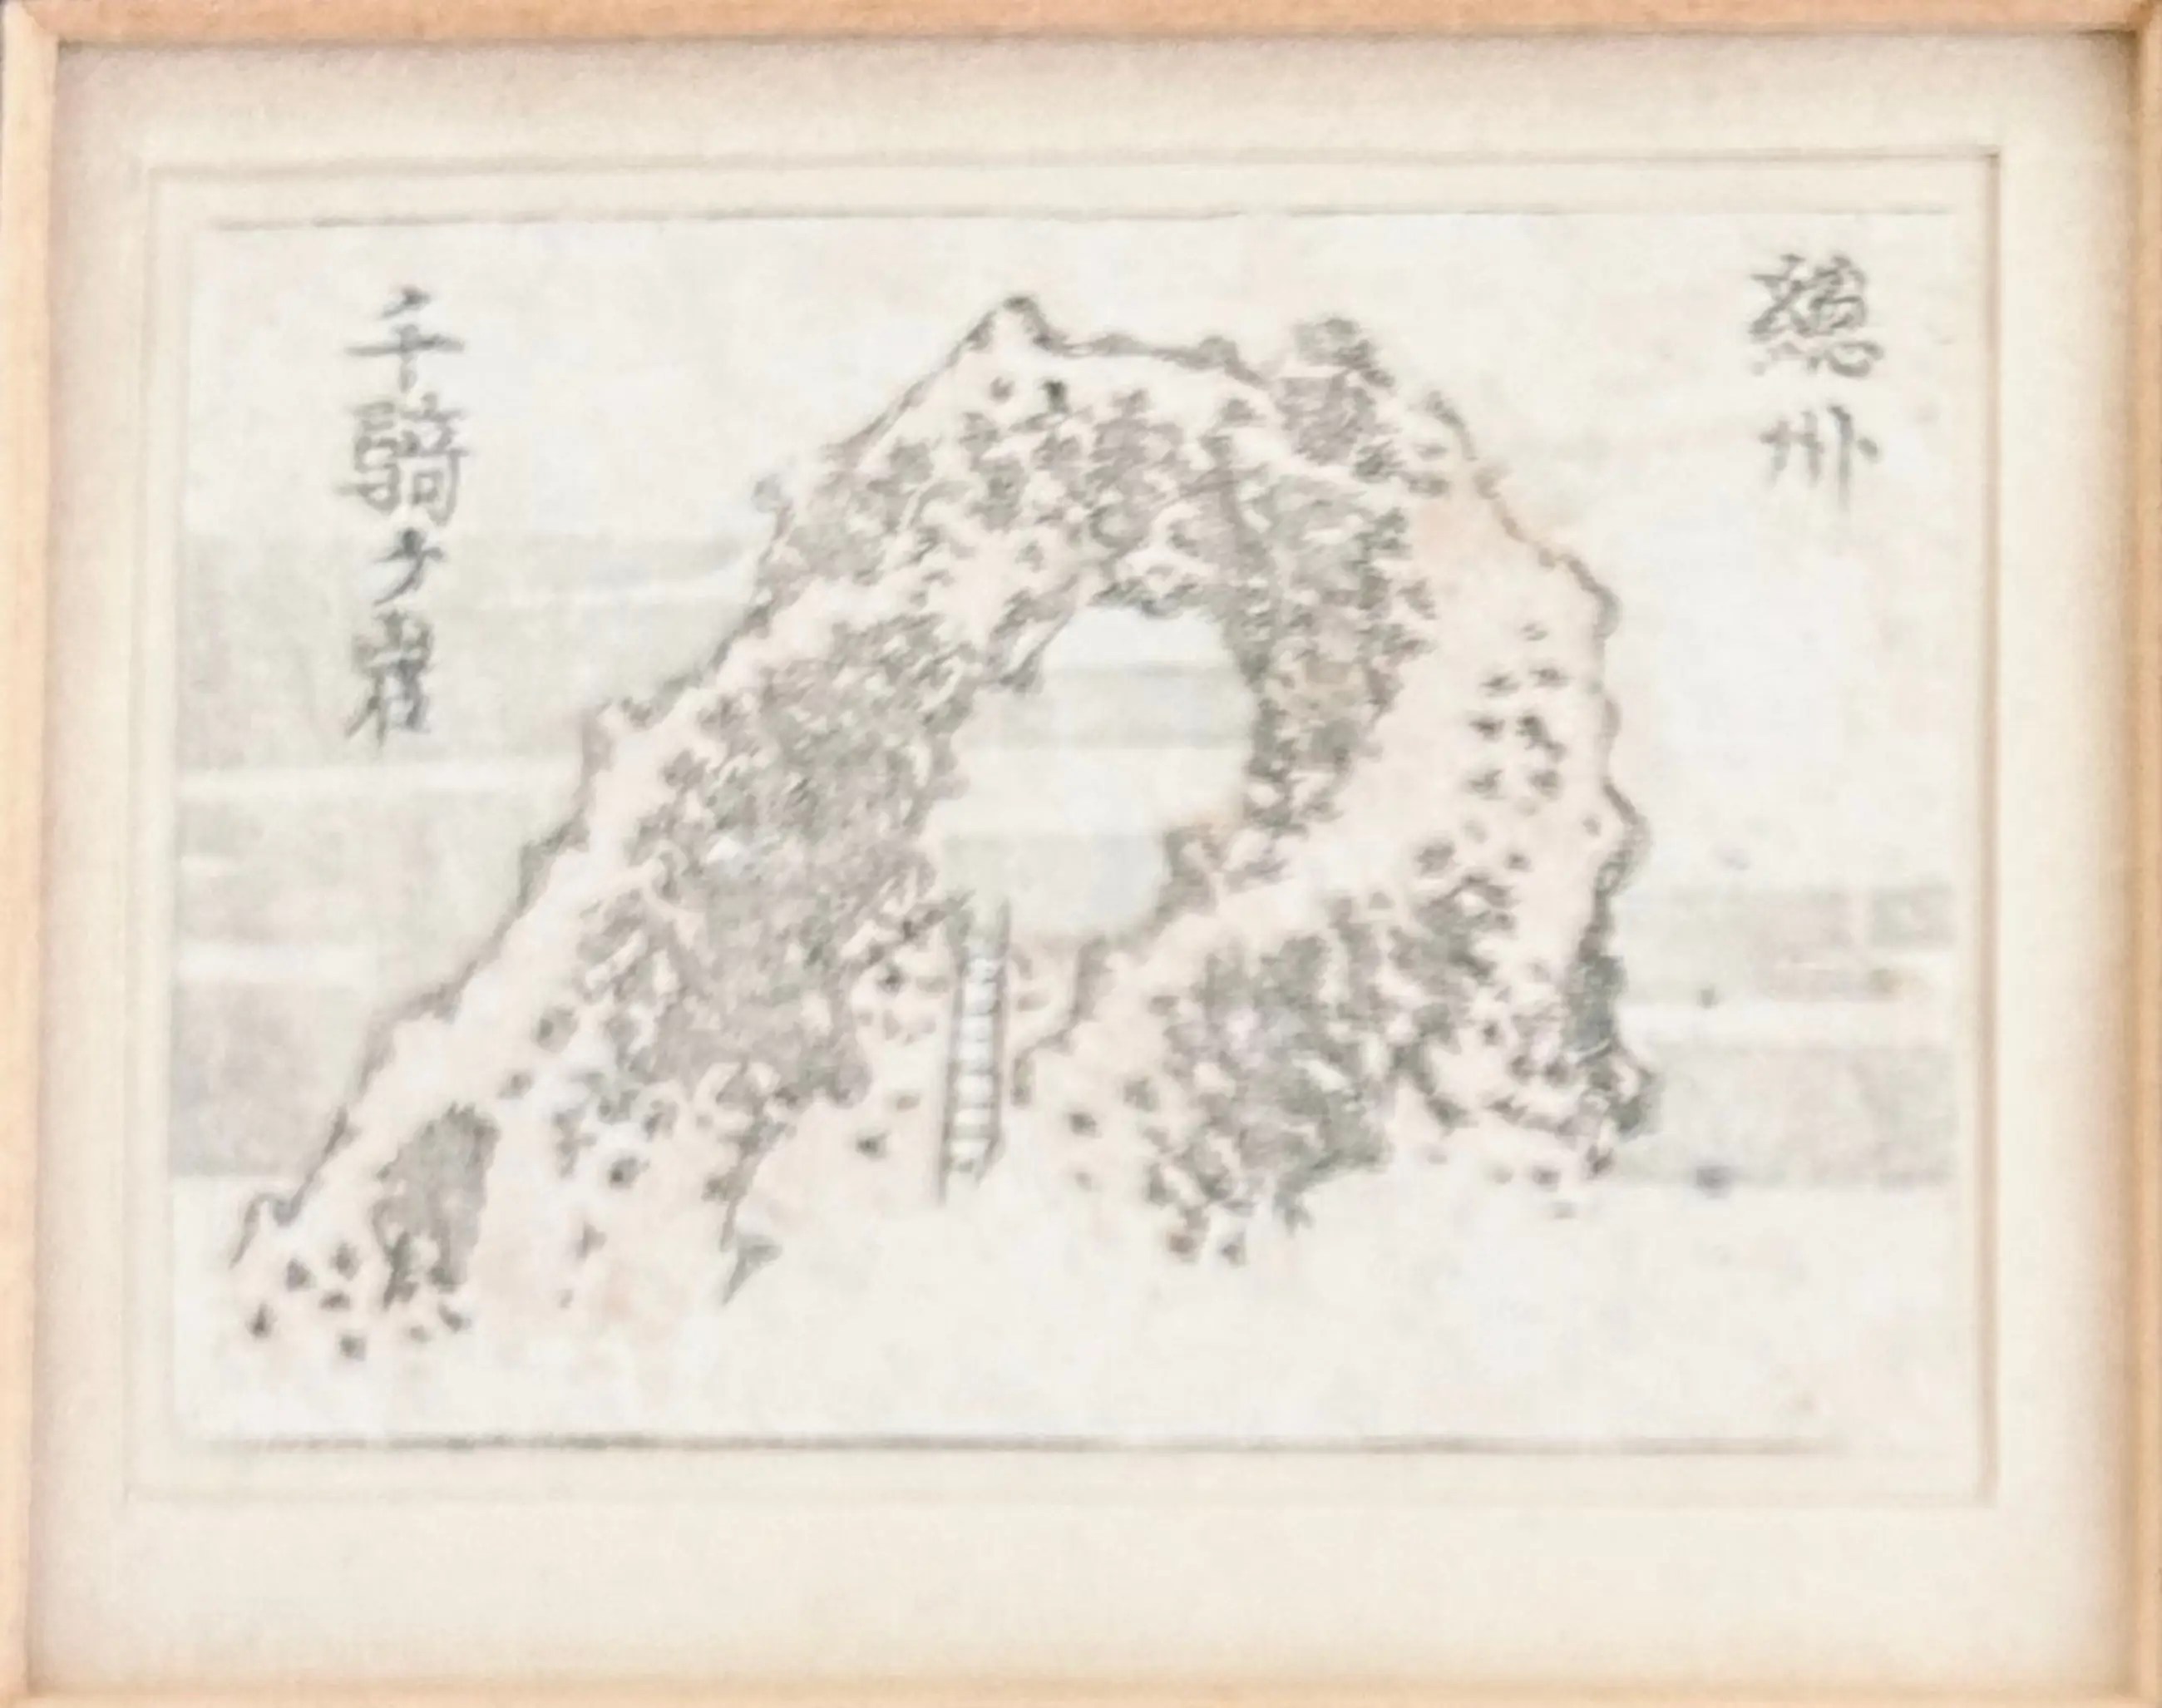 總州
千騎ケ岩